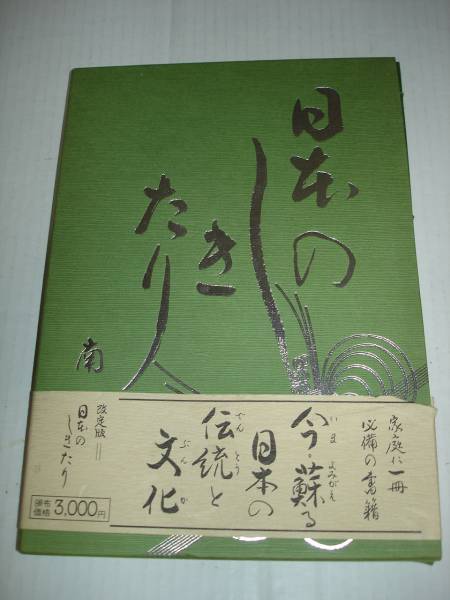 日本の
しきたり
南
家庭に一冊
必備の書籍
今・蘇る
いま よみがえ
日本の
伝統と
でんとう
文化
ぶんか
改定版＝
日本の
しきたり
頒布
価格 3,000円